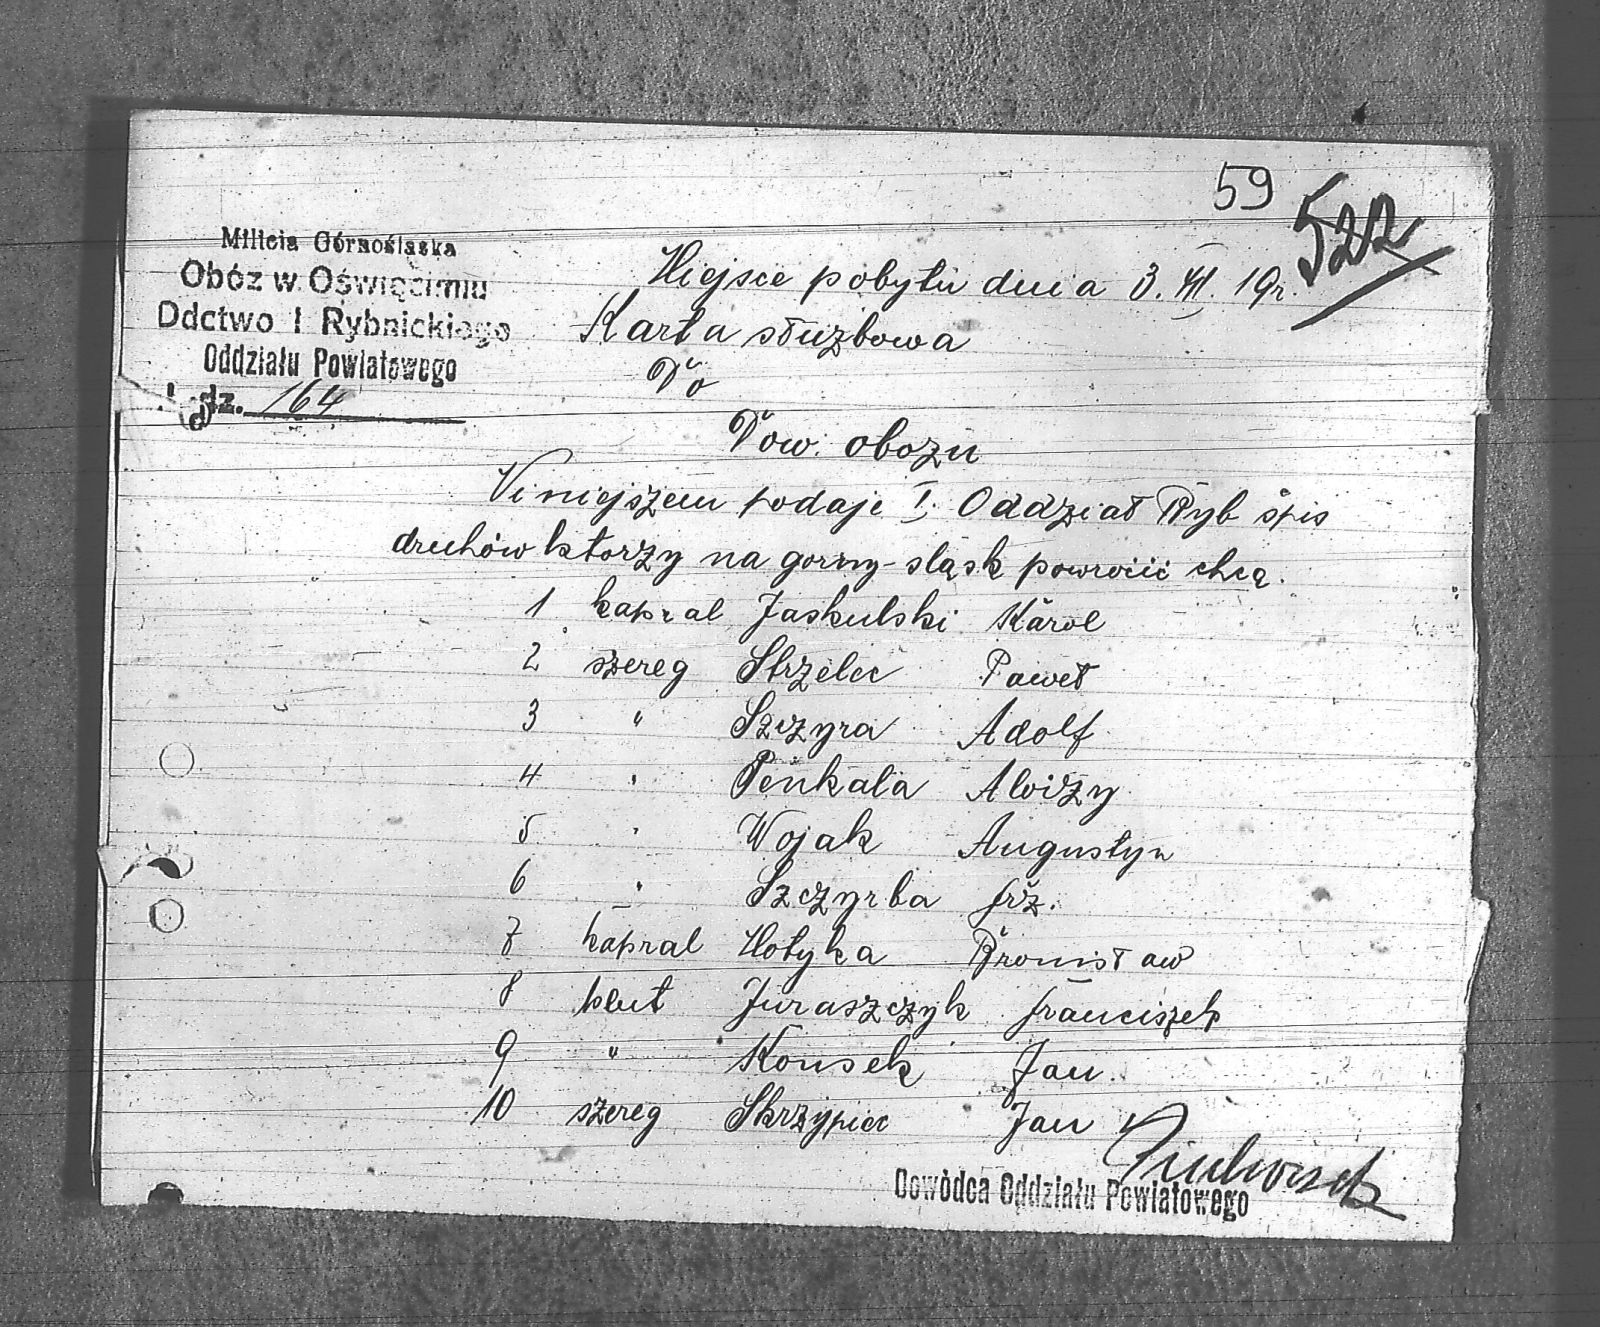 59 522
Milicia Górnośląska
Obóz w Oświęcimiu
Ddctwo I Rybnickiego
Oddziału Powiatowego
L. dz. 164
Miejsce pobytu dnia 3. VII. 19r.
Karta służbowa
Do
Dow. obozu
Niniejszem podaje I. Oddział Ryb spis
druhów ktorzy na gorny-sląsk powrócić chcą.
1 kapral Jaskulski Karol
2 szereg Strzelec Paweł
3 " Szczyra Adolf
4 " Penkala Aloizy
5 " Wojak Augustyn
6 " Szczyrba frz.
7 kapral Motyka Bronisław
8 plut Juraszczyk franciszek
9 " Konsek Jan
10 szereg Skrzypiec Jan
Dowódca Oddziału Powiatowego